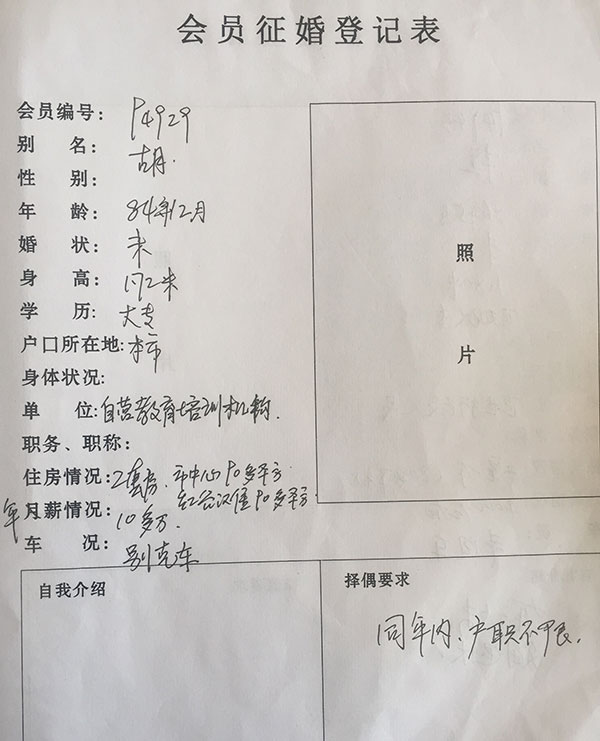 会员征婚登记表
会员编号: P4929
别 名: 胡.
性 别:
年 龄: 84年12月
婚 状: 未
身 高: 1.72米
学 历: 大专
户口所在地: 本市
身体状况:
单 位: 自营教育培训机构.
职务、职称:
住房情况: 2套房. 市中心90多平方
红谷滩 90多平方
年月薪情况: 10多万.
车 况: 别克车
照
片
自我介绍
择偶要求
同年内、户职不限.